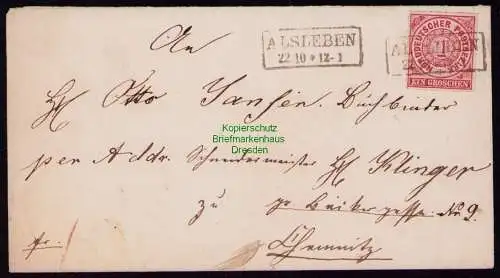 ALSLEBEN
22 10 * 12-1
ALSLEBEN
22
NORDDEUTSCHER POSTBEZIRK
1
EIN GROSCHEN
An
H Otto Jansen, Buchbinder
per Addr. Schneidermeister H Klinger
zu
No 9.
Chemnitz
fr.
Kopierschutz
Briefmarkenhaus
Dresden